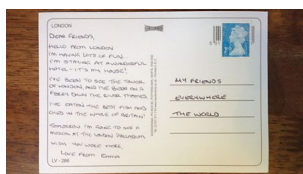 LONDON
DEAR FRIENDS,
HELLO FROM LONDON
I'M HAVING LOTS OF FUN.
I'M STAYING AT A WONDERFUL
HOTEL - IT'S MY HOUSE!
I'VE BEEN TO SEE THE TOWER
OF LONDON AND I'VE BEEN ON A
FERRY DOWN THE RIVER THAMES
I'VE EATEN THE BEST FISH AND
CHIPS IN THE WHOLE OF BRITAIN!
TOMORROW I'M GOING TO SEE A
MUSICAL AT THE LONDON PALLADIUM
WISH YOU WERE HERE,
LOVE FROM EMMA
LV-266
MY FRIENDS
EVERYWHERE
THE WORLD